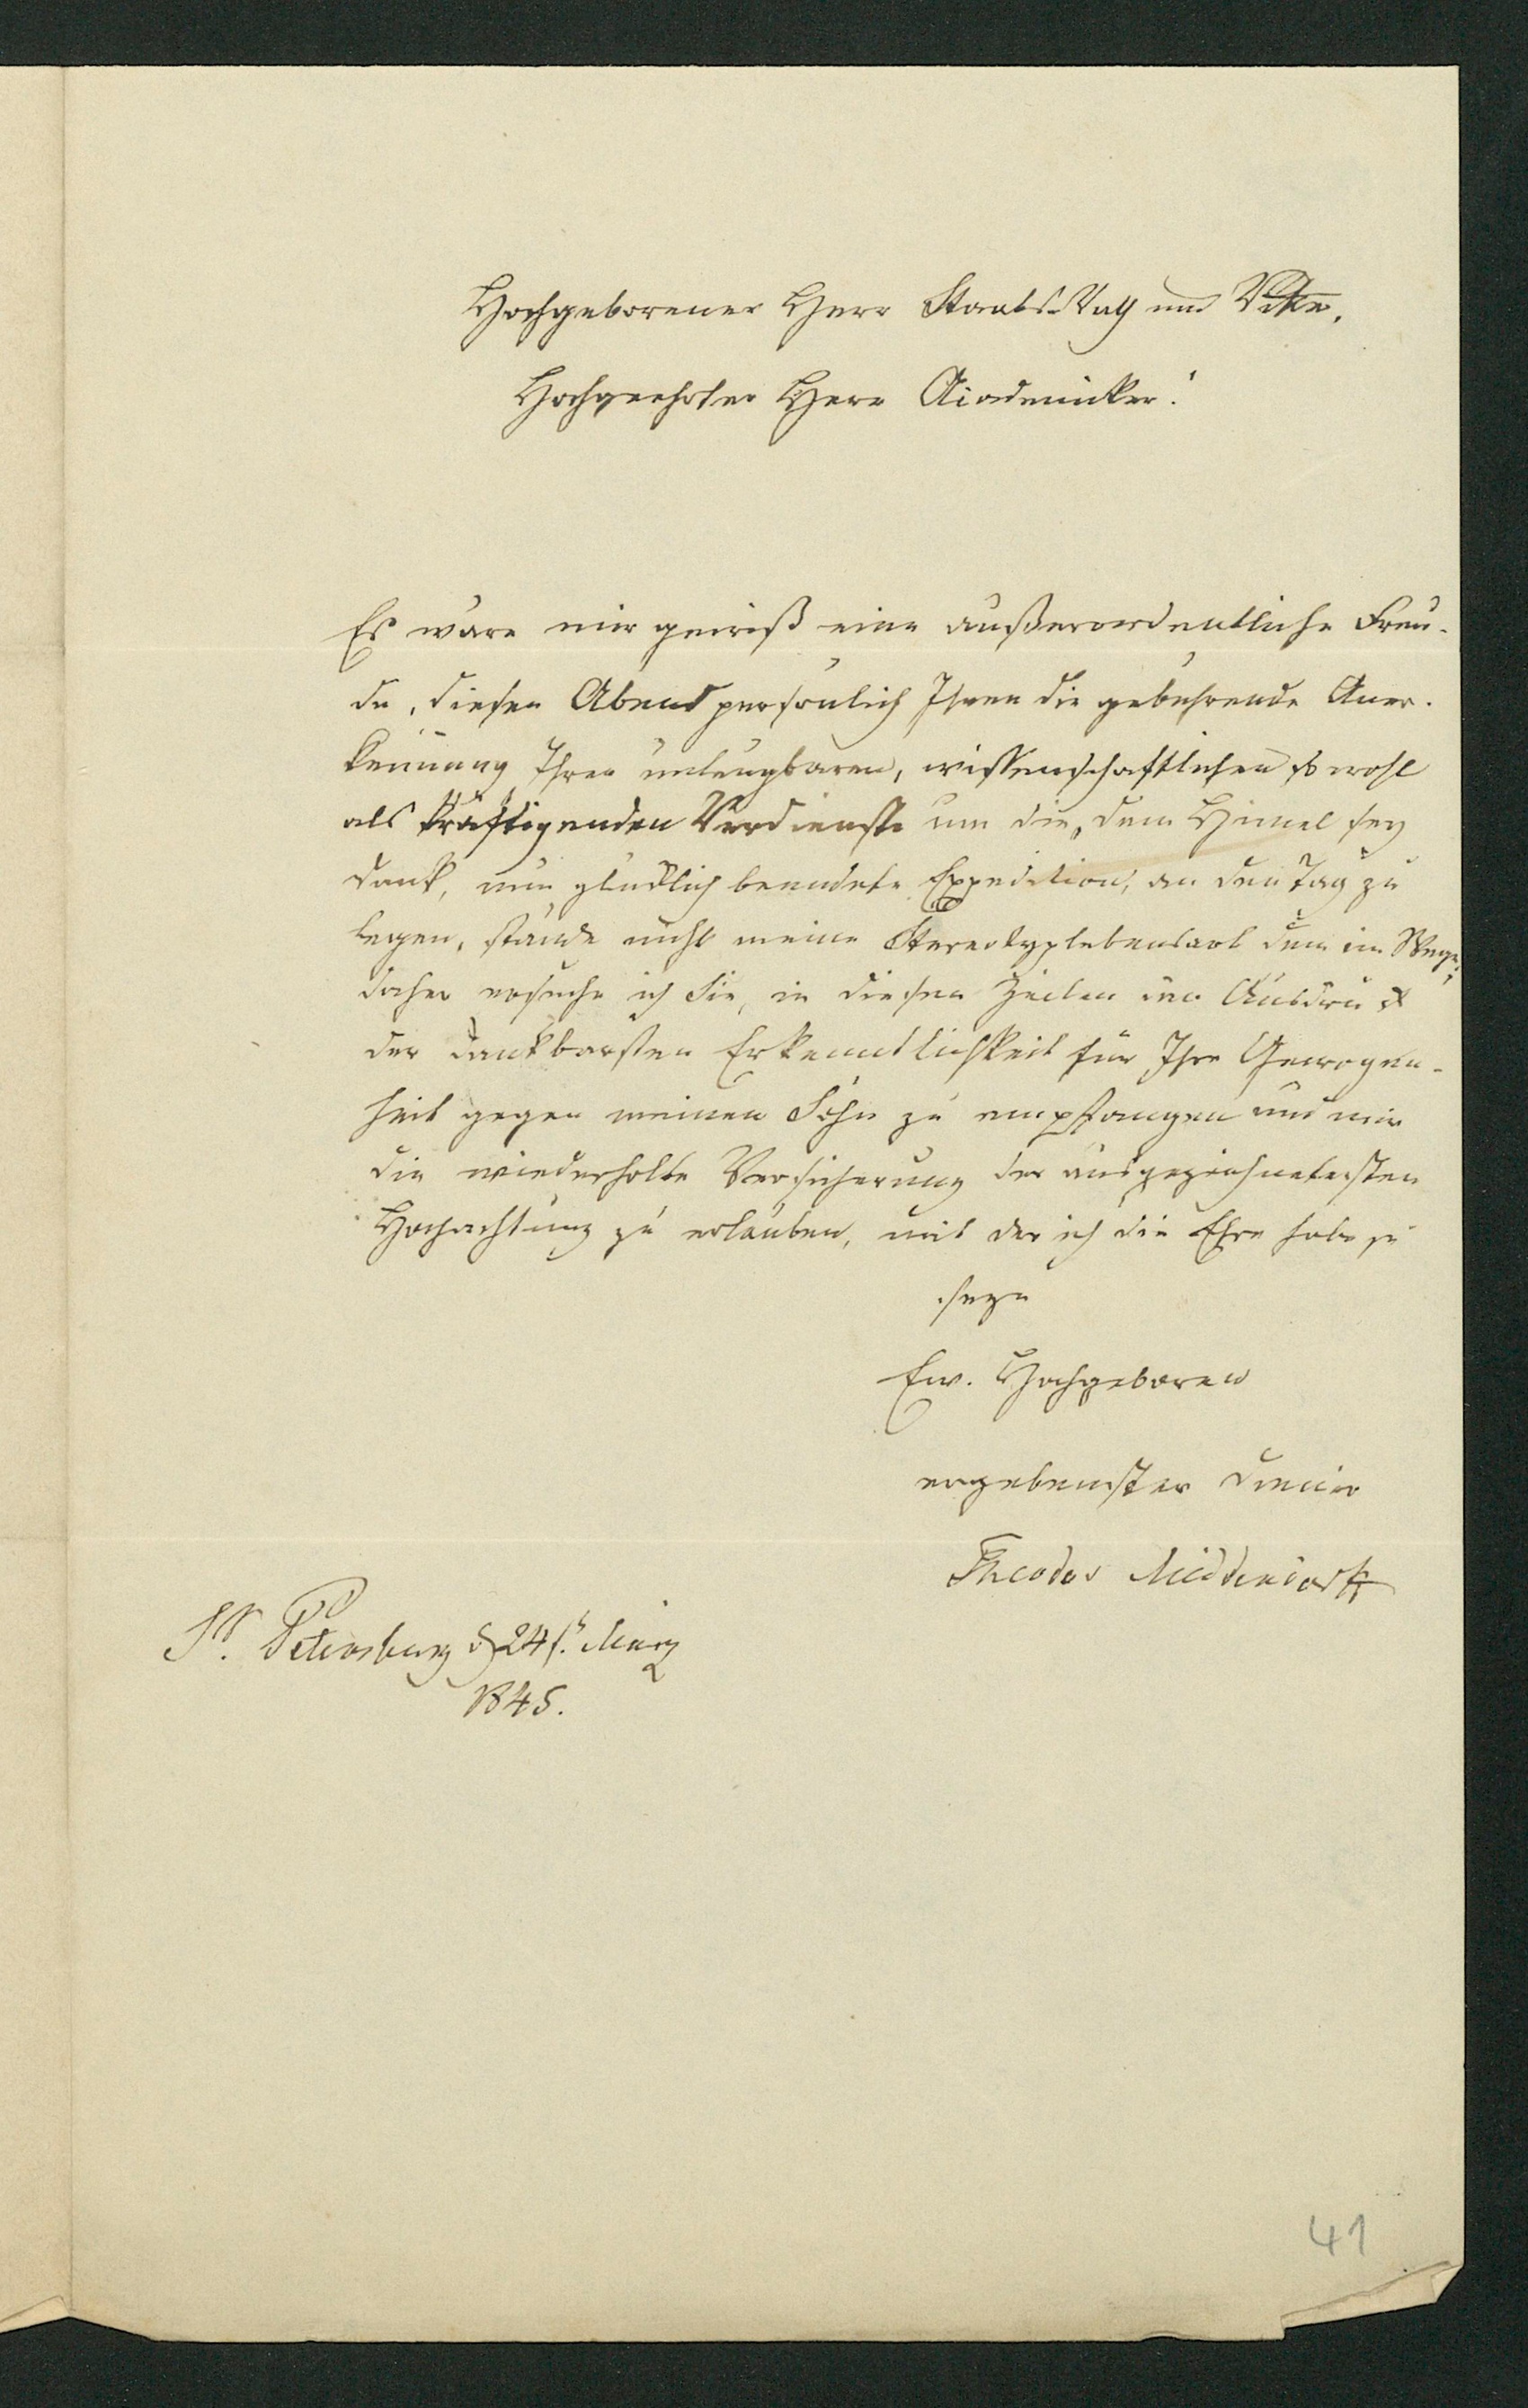 Hochgeborener Herr Staats-Rath und Ritter,
Hochgeehrter Herr Academicker!
Es wäre mir gewiß eine außerordentliche Freu-
de, diesen Abend persönlich Ihnen die gebührende Aner-
kennung Ihrer unleugbaren, wissenschaftlichen sowohl
als kräftigenden Verdienste um die, dem Himel sey
Dank, nun glücklich beendete Expedition, an den Tag zu
legen, stände nicht meine Stereotyplebensart dem im Wege;
daher ersuche ich Sie, in diesen Zeilen den Ausdruck
der dankbarsten Erkenntlichkeit für Ihre Gewogen-
heit gegen meinen Sohn zu empfangen und mir
die wiederholte Versicherung der ausgezeichnetesten
Hochachtung zu erlauben, mit der ich die Ehre habe zu
seyn
Ew. Hochgeboren
ergebenster Diener
Theodor Middendorff
St. Petersburg d 24st. März
1845.
41